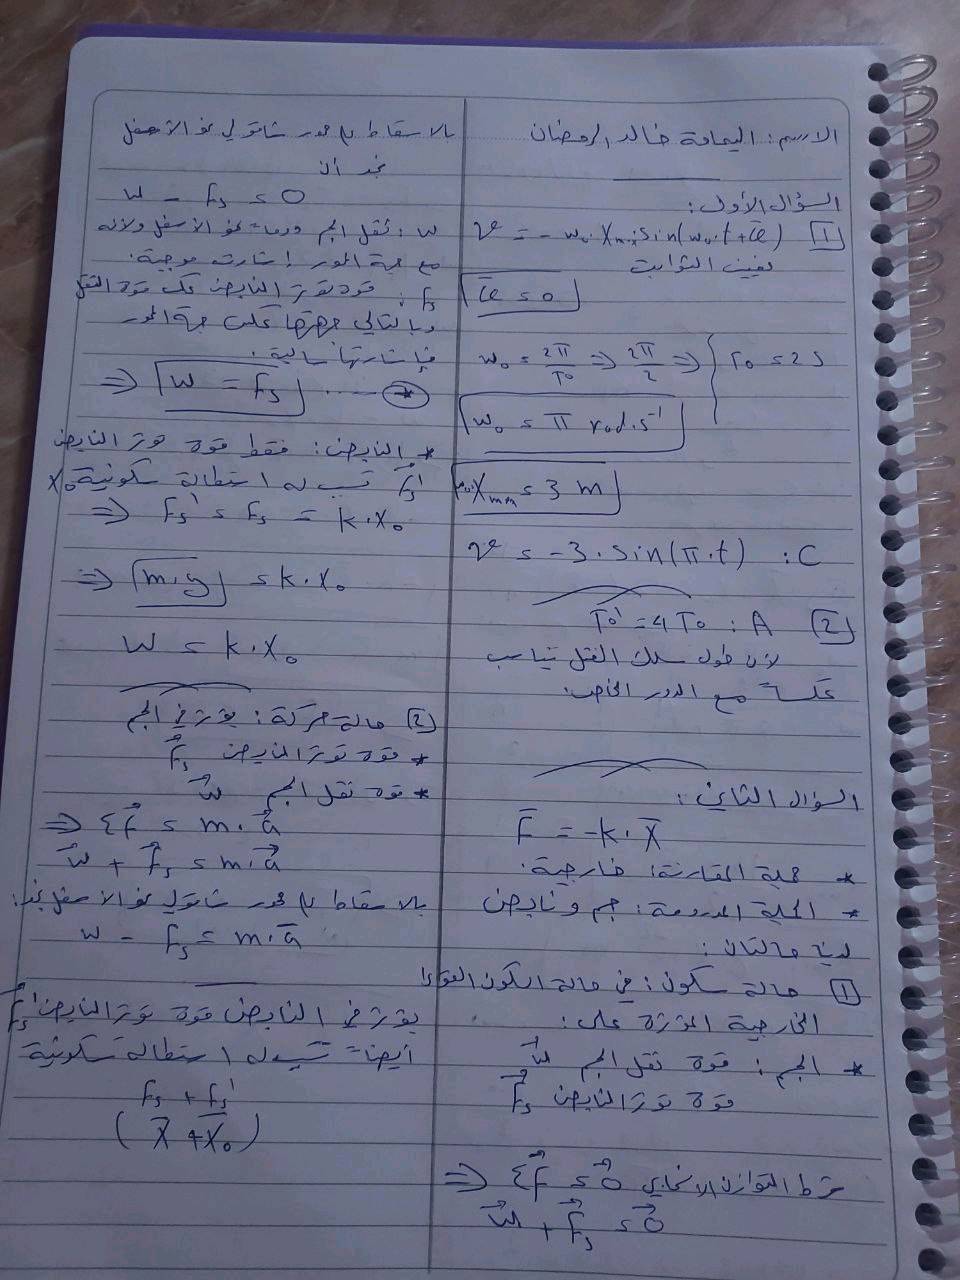 الاسم: اليمامة خالد الرمضان
السؤال الأول:
1 v = - ω₀ Xmax sin(ω₀.t + φ̄)
نعين الثوابت
φ̄ = 0
ω₀ = 2π/T₀ ⇒ 2π/2 ⇒ { T₀ = 2 s
ω₀ = π rad.s⁻¹
Xmax = 3 m
v = -3. sin(π.t) : C
2 A : T₀' = 4 T₀
لأن طول سلك الفتل تناسب
عكساً مع الدور الخاص.
السؤال الثاني:
F̄ = -k. X̄
* جملة المقارنة: خارجية.
* الجملة المدروسة: جسم ونابض
لدينا حالتان:
1 حالة سكون: في حالة السكون القوى
الخارجية المؤثرة على:
* الجسم: قوة ثقل الجسم w⃗
قوة توتر النابض F⃗s
شرط التوازن الانسحابي ΣF⃗ = 0⃗ ⇒
w⃗ + F⃗s = 0⃗
بالاسقاط على محور شاقولي نحو الأسفل
نجد أن
w - Fs = 0
w: ثقل الجسم دوماً نحو الأسفل ولأنه
مع جهة المحور إشارته موجبة.
Fs: قوة توتر النابض عكس قوة الثقل
وبالتالي جهتها عكس جهة المحور
فإشارتها سالبة.
⇒ w = Fs ..... *
* النابض: فقط قوة توتر النابض
F⃗s' تسبب له استطالة سكونية x₀
⇒ Fs' = Fs = k.x₀
⇒ m.g = k.x₀
w = k.x₀
2 حالة حركة: يؤثر في الجسم
* قوة توتر النابض F⃗s
* قوة ثقل الجسم w⃗
⇒ ΣF⃗ = m.a⃗
w⃗ + F⃗s = m.a⃗
بالاسقاط على محور شاقولي نحو الأسفل نجد:
w - Fs = m.ā
يؤثر في النابض قوة توتر النابض F⃗s'
أيضاً تسبب له استطالة سكونية
Fs + Fs'
(x̄ + x₀)